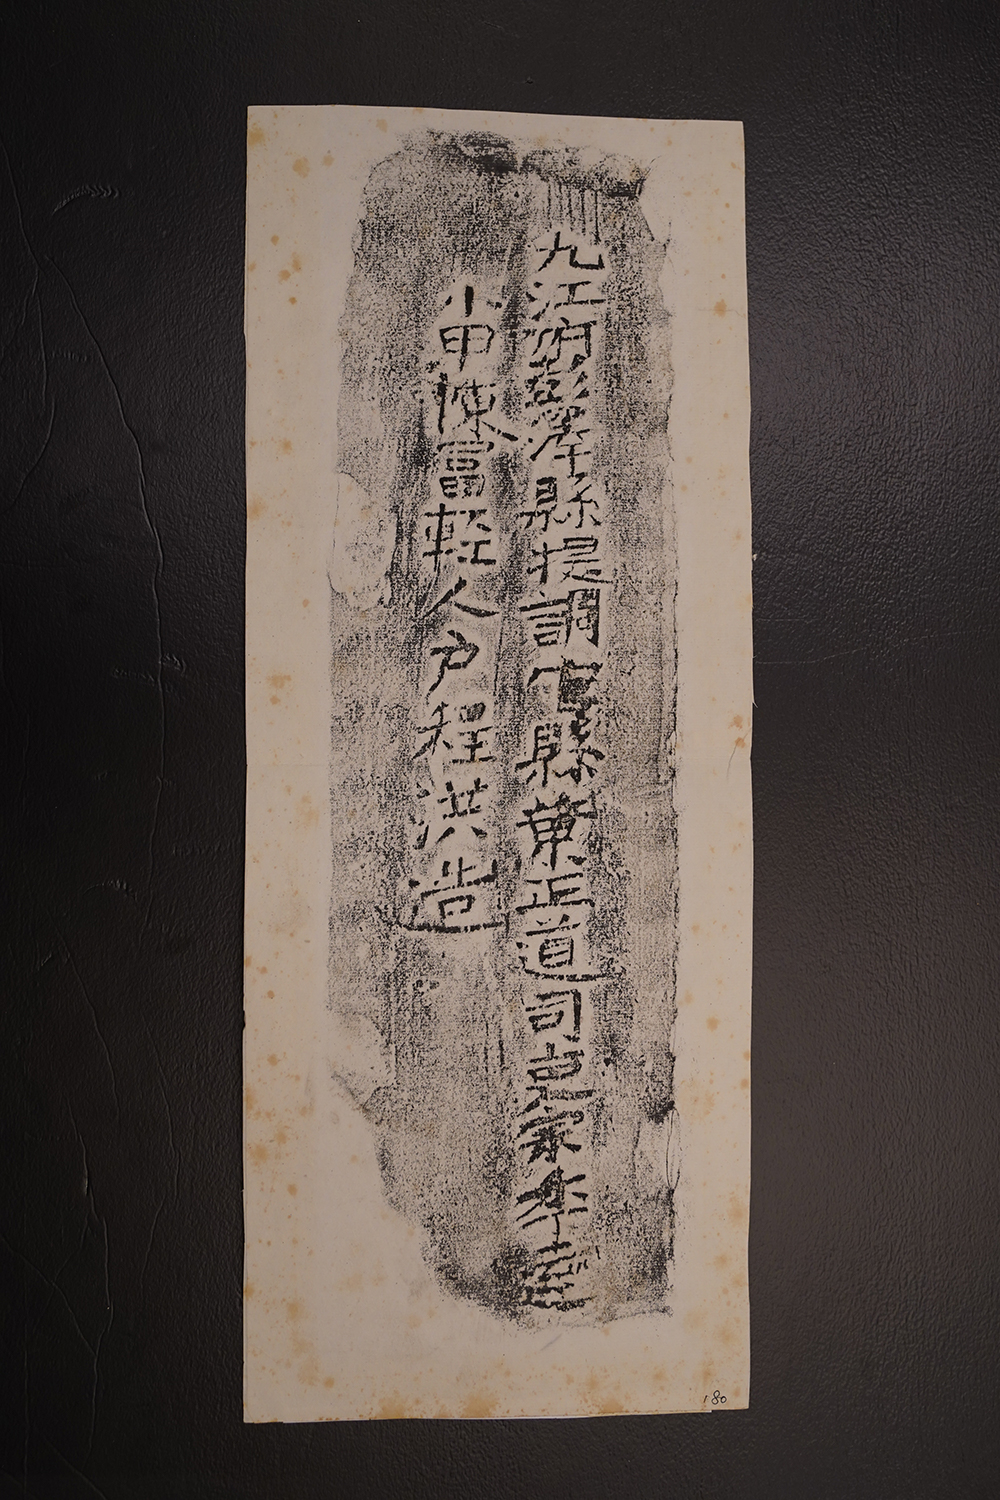 九江府彭泽縣提調官縣葉正道司吏李
小甲陳富輕人户程洪造
180